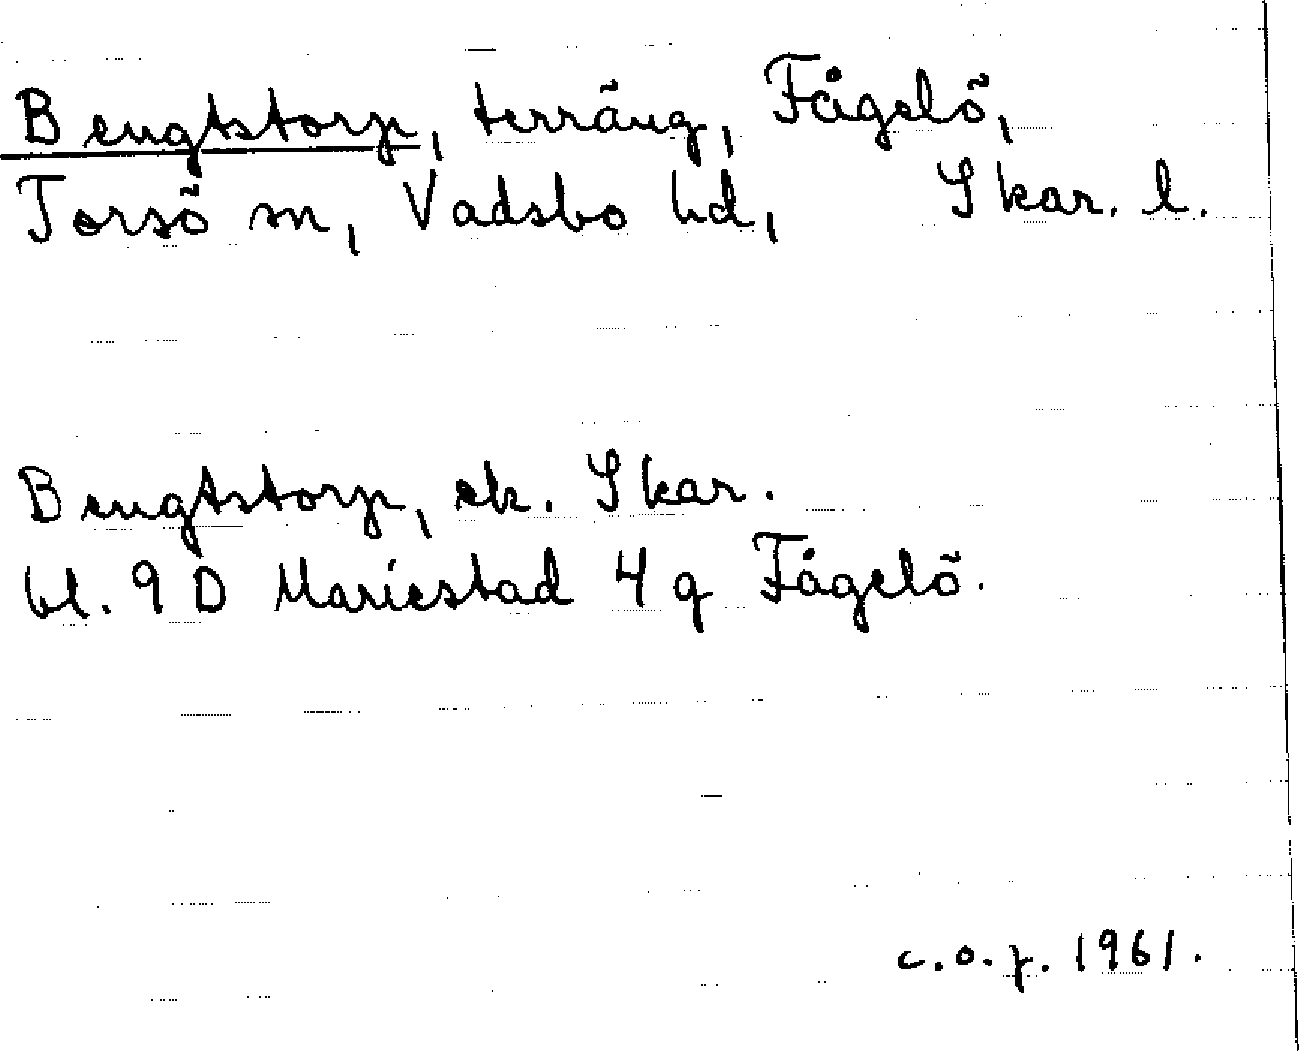 Bengtstorp, terräng, Fågelö,
Torsö sn, Vadsbo hd, Skar. l.
Bengtstorp, ek. Skar.
bl. 9 D Mariestad 4 g Fågelö.
c.o.f. 1961.